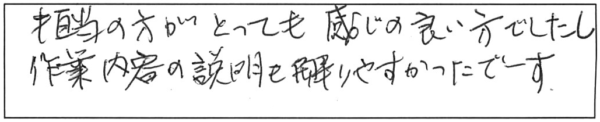 担当の方がとっても感じの良い方でしたし
作業内容の説明も解りやすかったでーす